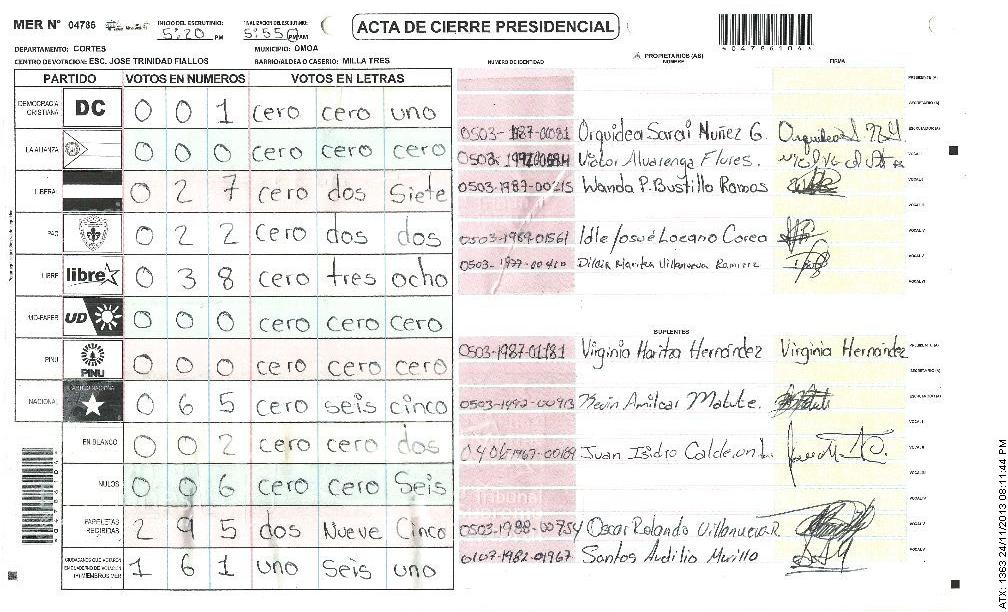 MER N° 04786
INICIO DEL ESCRUTINIO: 5:20 PM
FINALIZACION DEL ESCRUTINIO: 5:55 PM
ACTA DE CIERRE PRESIDENCIAL
DEPARTAMENTO: CORTES
MUNICIPIO: OMOA
CENTRO DE VOTACION: ESC. JOSE TRINIDAD FIALLOS
BARRIO/ALDEA O CASERIO: MILLA TRES
PARTIDO VOTOS EN NUMEROS VOTOS EN LETRAS
DEMOCRACIA CRISTIANA DC 0 0 1 cero cero uno
LA ALIANZA 0 0 0 cero cero cero
LIBERAL 0 2 7 cero dos Siete
PAC 0 2 2 cero dos dos
LIBRE libre 0 3 8 cero tres ocho
UD-FAPER UD 0 0 0 cero cero cero
PINU PINU 0 0 0 cero cero cero
NACIONAL 0 6 5 cero seis cinco
EN BLANCO 0 0 2 cero cero dos
NULOS 0 0 6 cero cero Seis
PAPELETAS RECIBIDAS 2 9 5 dos Nueve Cinco
1 6 1 uno seis uno
NUMERO DE IDENTIDAD
PROPIETARIOS (AS)
NOMBRE
FIRMA
0503-1987-00081 Orquidea Sarai Nuñez G.
Victor Alvarenga Flures.
0503-1987-00215 Wanda P. Bustillo Ramos
0503-1989-01561 Idle Josué Lozano Corea
SUPLENTES
0503-1987-01181 Virginia Maritza Hernández Virginia Hernandez
0503-1992-00913 Kevin Amilcar Matute.
Juan Isidro Calderon
0503-1988-00754 Oscar Rolando Villanueva R.
0107-1982-01967 Santos Audilio Murillo
ATX: 1363 24/11/2013 08:11:44 PM